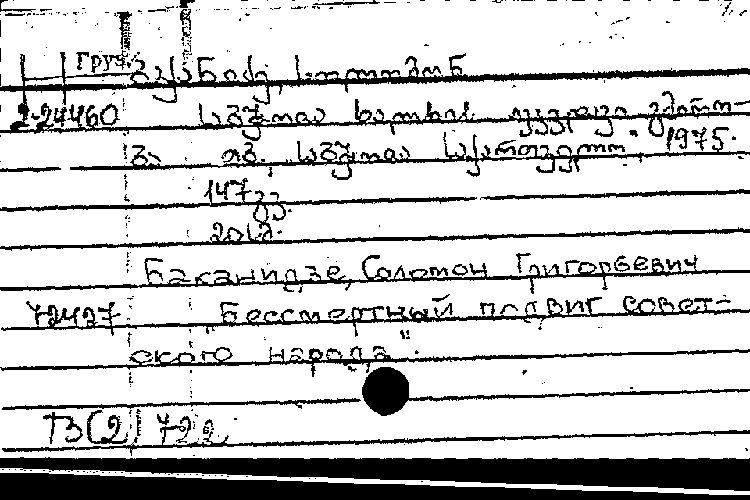 Груз. ბაქანიძე, სოლომონ
2-24460 საბჭოთა ხალხის უკვდავი გმირო-
ბა თბ. საბჭოთა საქართველო", 1975.
147 გვ.
Баканидзе, Соломон Григорьевич
72427 "Бессмертный подвиг совет-
ского народа".
ТЗ(2) 722